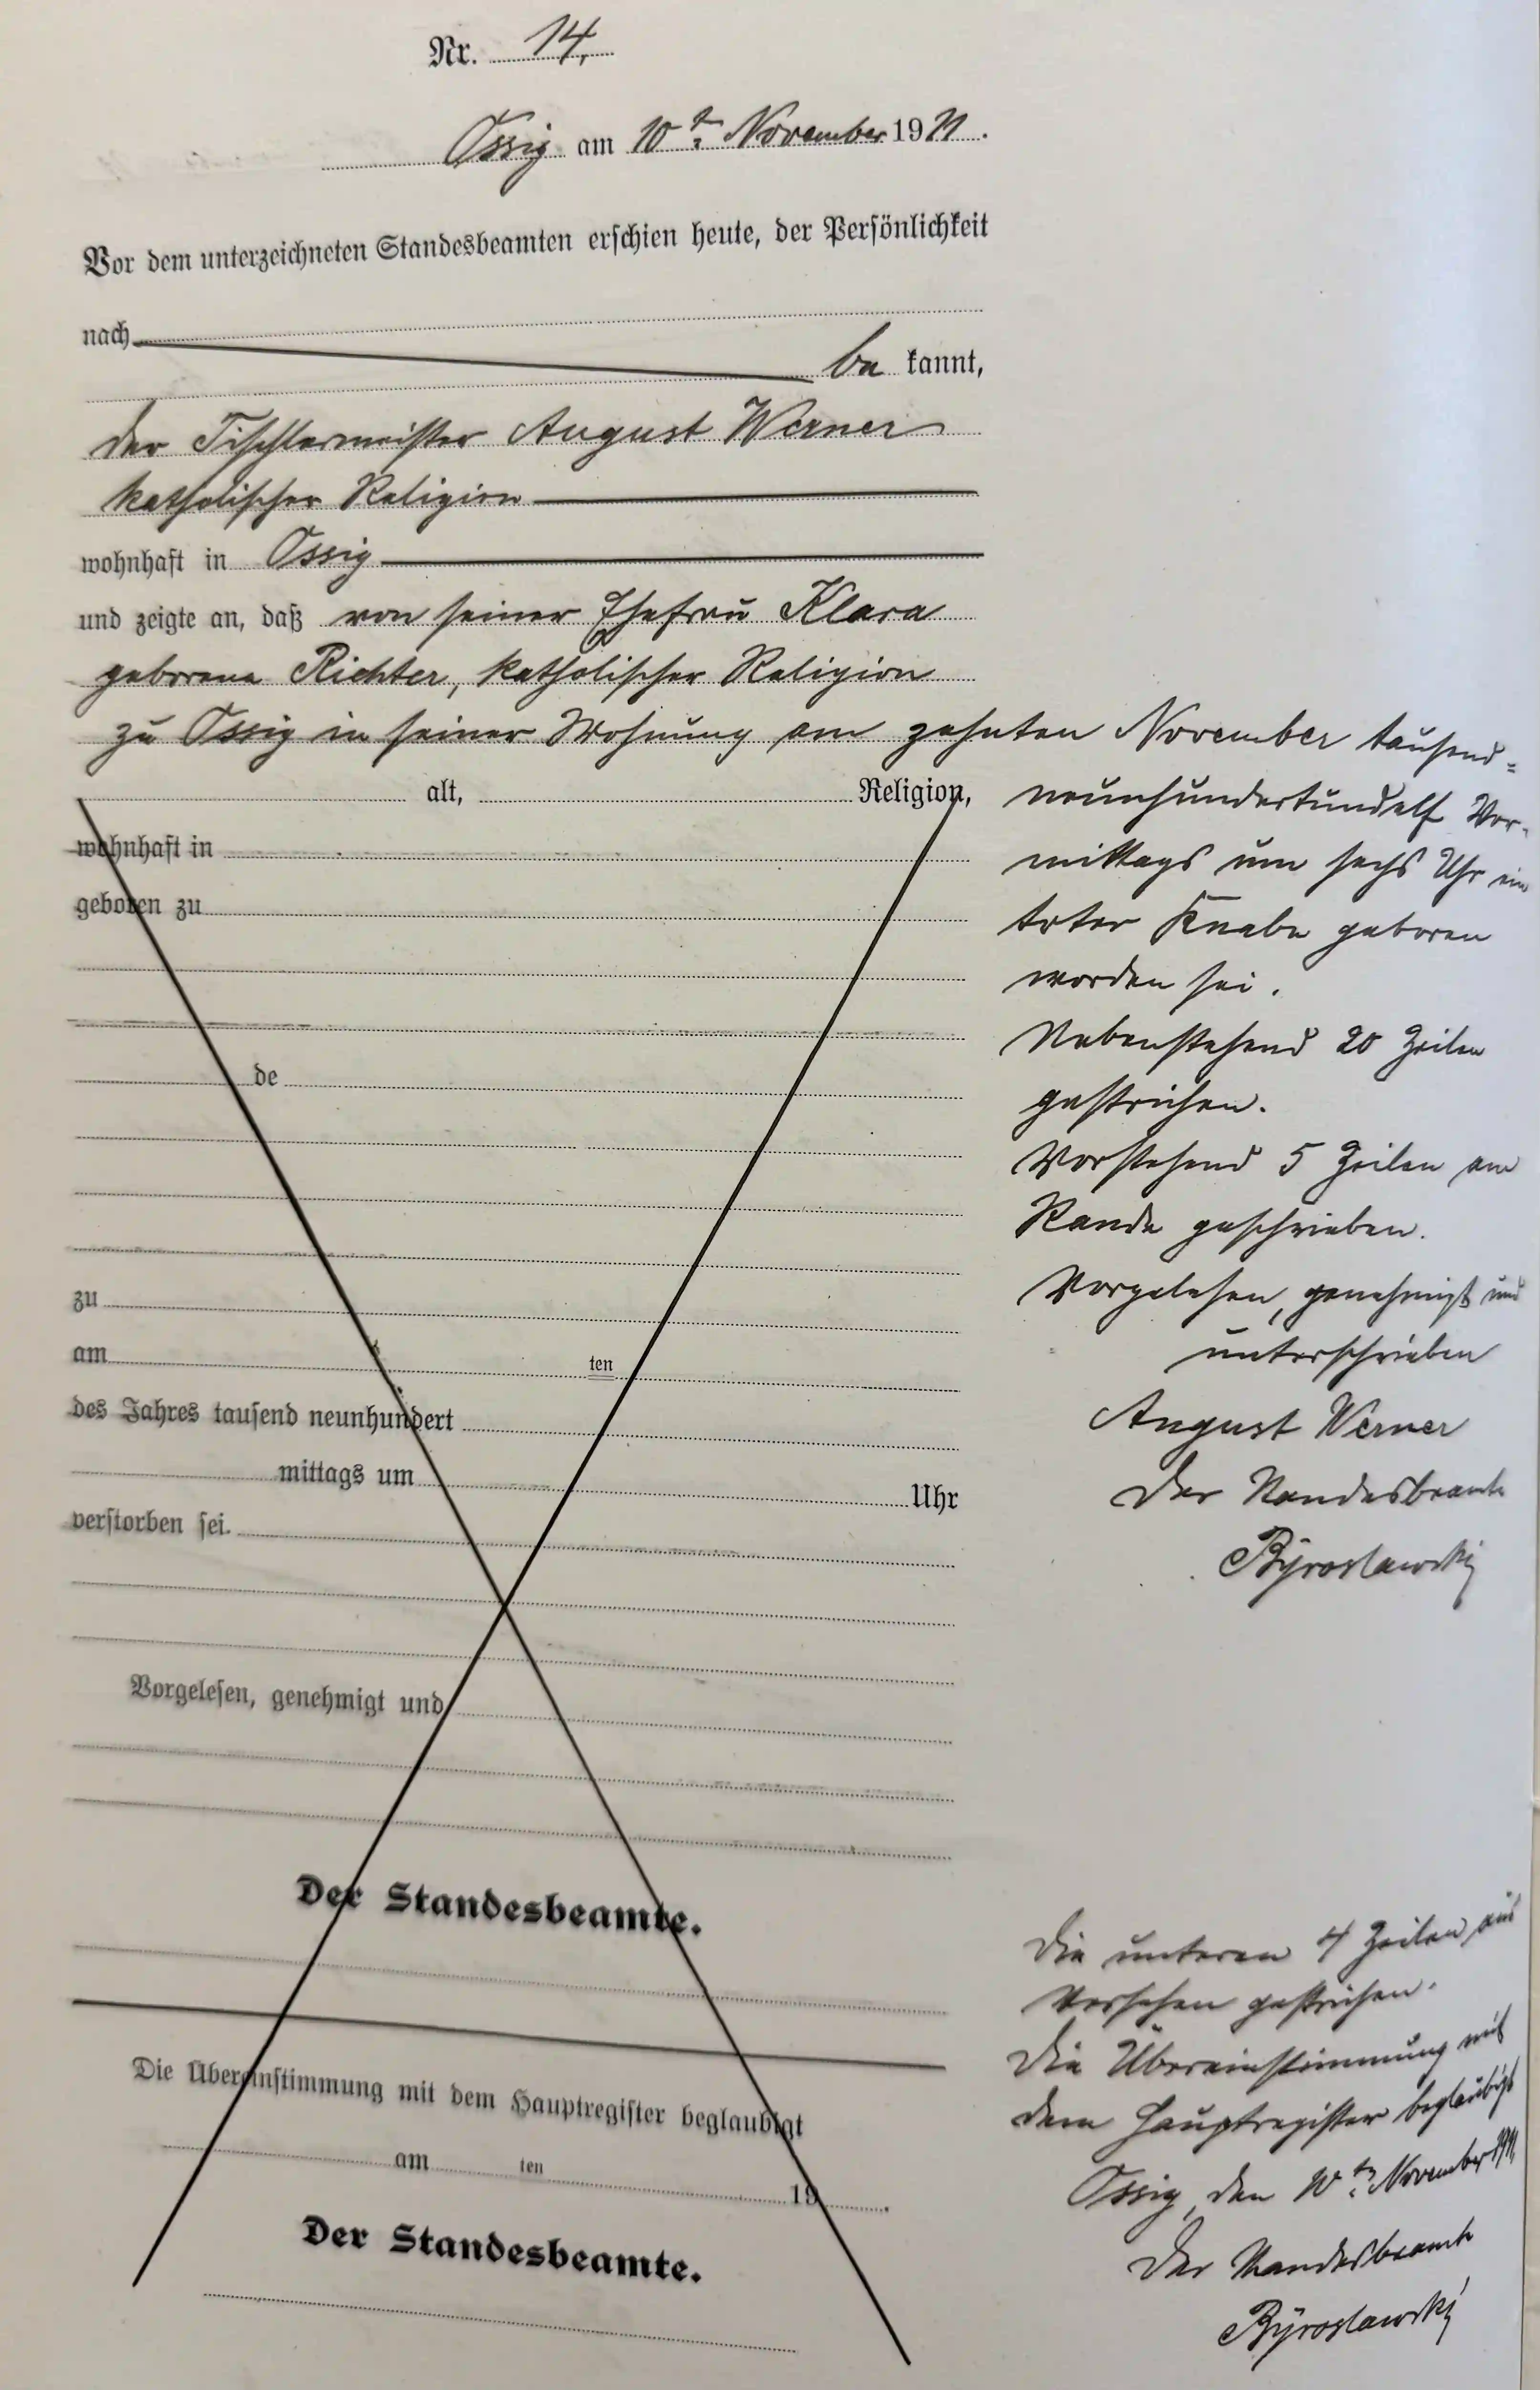 Nr. 14,
Ossig am 10ten November 1911.
Vor dem unterzeichneten Standesbeamten erschien heute, der Persönlichkeit
nach
be kannt,
der Tischlermeister August Werner
katholischer Religion
wohnhaft in Ossig
und zeigte an, daß von seiner Ehefrau Klara
geborene Richter, katholischer Religion
zu Ossig in seiner Wohnung am zehnten November tausend=
neunhundertundelf Vor-
mittags um sechs Uhr ein
toter Knabe geboren
worden sei.
Nebenstehend 20 Zeilen
gestrichen.
Vorstehend 5 Zeilen am
Rande geschrieben.
Vorgelesen, genehmigt und
unterschrieben
August Werner
Der Standesbeamte
Byroslawski
alt, Religion,
wohnhaft in
geboren zu
de
zu
am ten
des Jahres tausend neunhundert
mittags um Uhr
verstorben sei.
Vorgelesen, genehmigt und
Der Standesbeamte.
Die Übereinstimmung mit dem Hauptregister beglaubigt
am ten 19 .
Der Standesbeamte.
Die unteren 4 Zeilen aus
Versehen gestrichen.
Die Übereinstimmung mit
dem Hauptregister beglaubigt
Ossig, den 10ten November 1911,
Der Standesbeamte
Byroslawski